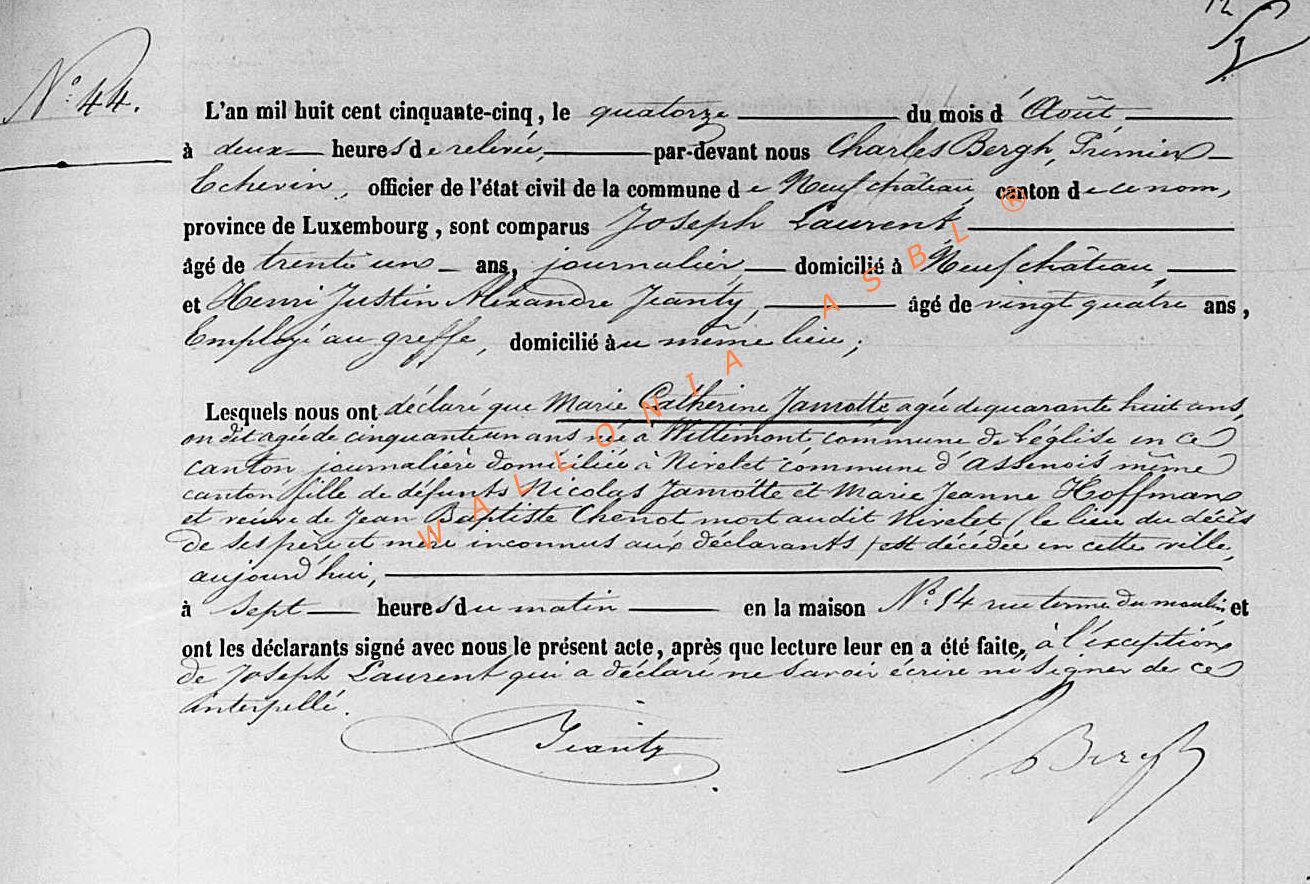 N° 44.
L'an mil huit cent cinquante-cinq, le quatorze du mois d'Août
à deux heures de relevée, par-devant nous Charles Bergh, Prémier
Echevin, officier de l'état civil de la commune de Neufchâteau, canton de ce nom,
province de Luxembourg, sont comparus Joseph Laurent
âgé de trente un ans, journalier, domicilié à Neufchâteau,
et Henri Justin Alexandre Jeanty, âgé de vingt quatre ans,
Employé au greffe, domicilié au même lieu;
Lesquels nous ont déclaré que Marie Catherine Jamotte agée de quarante huit ans,
on dit agée de cinquante un ans née à Wittimont commune de Léglise en ce
canton journalière domiciliée à Nivelet commune d'Assenois même
canton fille de défunts Nicolas Jamotte et Marie Jeanne Hoffman
et veuve de Jean Baptiste Chenot mort audit Nivelet (le lieu du décès
de ses père et mère inconnus aux déclarants) est décédée en cette ville,
aujourd'hui,
à sept heures du matin en la maison N° 54 rue terme du moulin et
ont les déclarants signé avec nous le présent acte, après que lecture leur en a été faite, à l'exception
de Joseph Laurent qui a déclaré ne savoir écrire ni signer de ce
interpellé.
Jeanty Bergh
WALLONIA ASBL ®